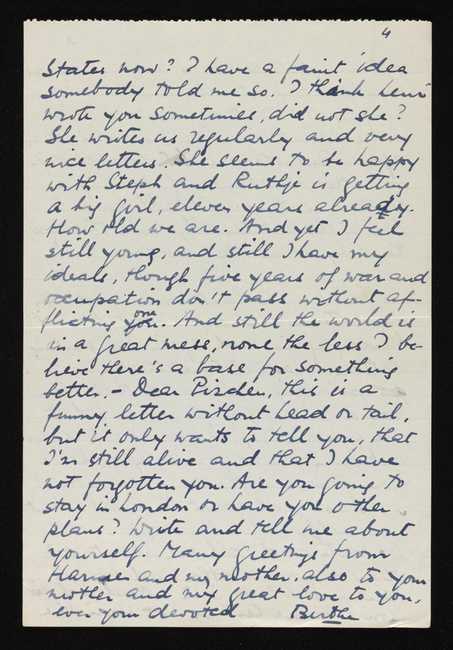 4
States now? I have a faint idea
somebody told me so. I think Leni
wrote you sometimes, did not she?
She writes us regularly and very
nice letters. She seems to be happy
with Steph and Ruthje is getting
a big girl, eleven years already.
How old we are. And yet I feel
still young, and still I have my
ideals, though five years of war and
occupation don't pass without af-
flicting one. And still the world is
in a great mess, none the less I be-
lieve there's a base for something
better. – Dear this is a
funny letter without head or tail,
but it only wants to tell you, that
I'm still alive and that I have
not forgotten you. Are you going to
stay in London or have you other
plans? Write and tell me about
yourself. Many greetings from
and my mother, also to your
mother and my great love to you,
ever your devoted Berthe